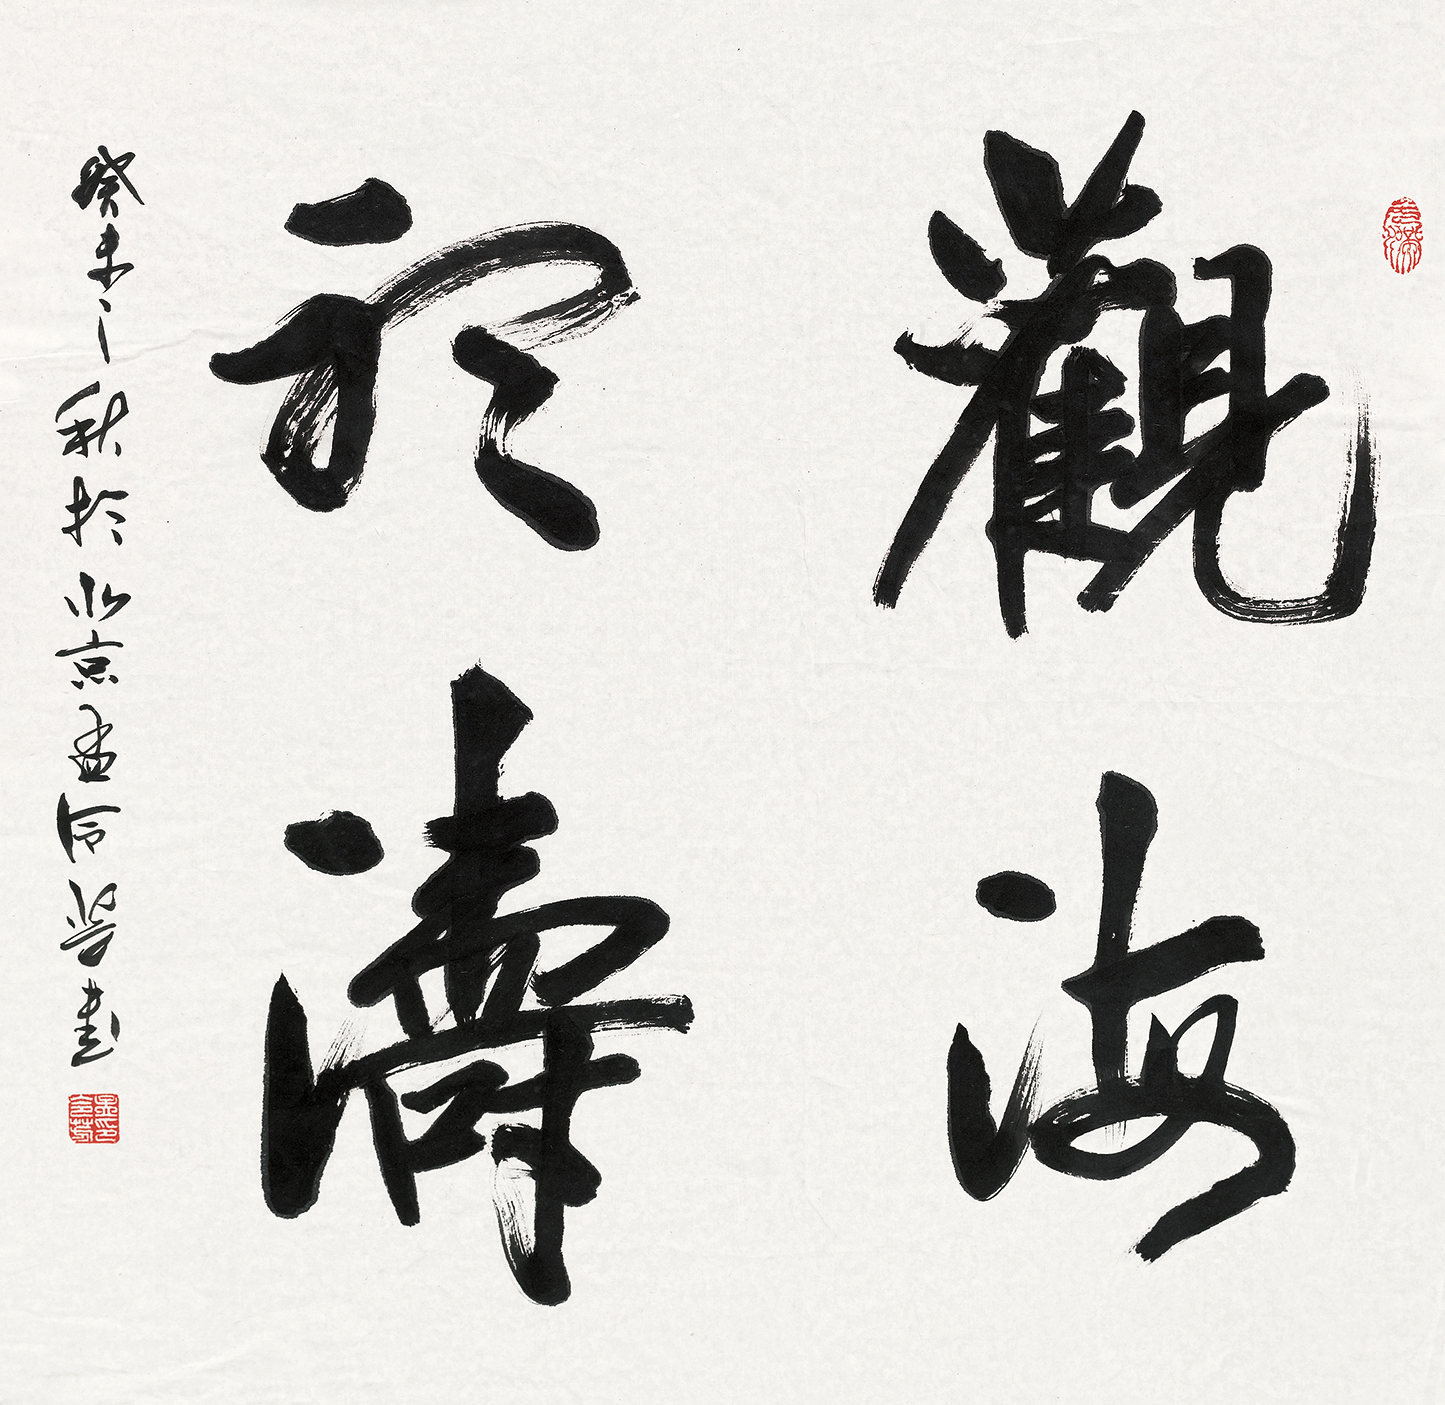 觀海
聽濤
癸未之秋於北京孟書